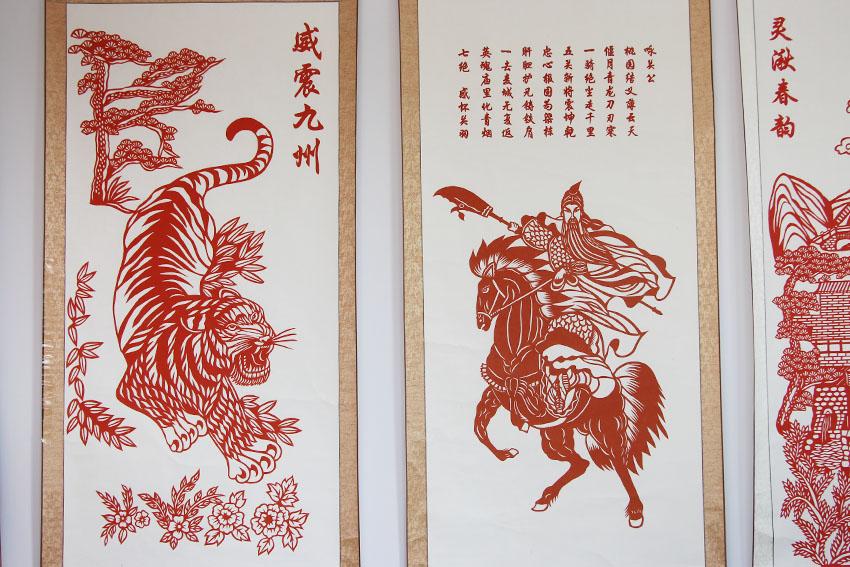 威震九州
咏关公
桃园结义薄云天
偃月青龙刀刃寒
一骑绝尘走千里
五关斩将震坤乾
忠心报国为梁栋
肝胆护兄铸铁肩
一去麦城无复返
英魂庙里化青烟
七绝 感怀关羽
灵湫春韵